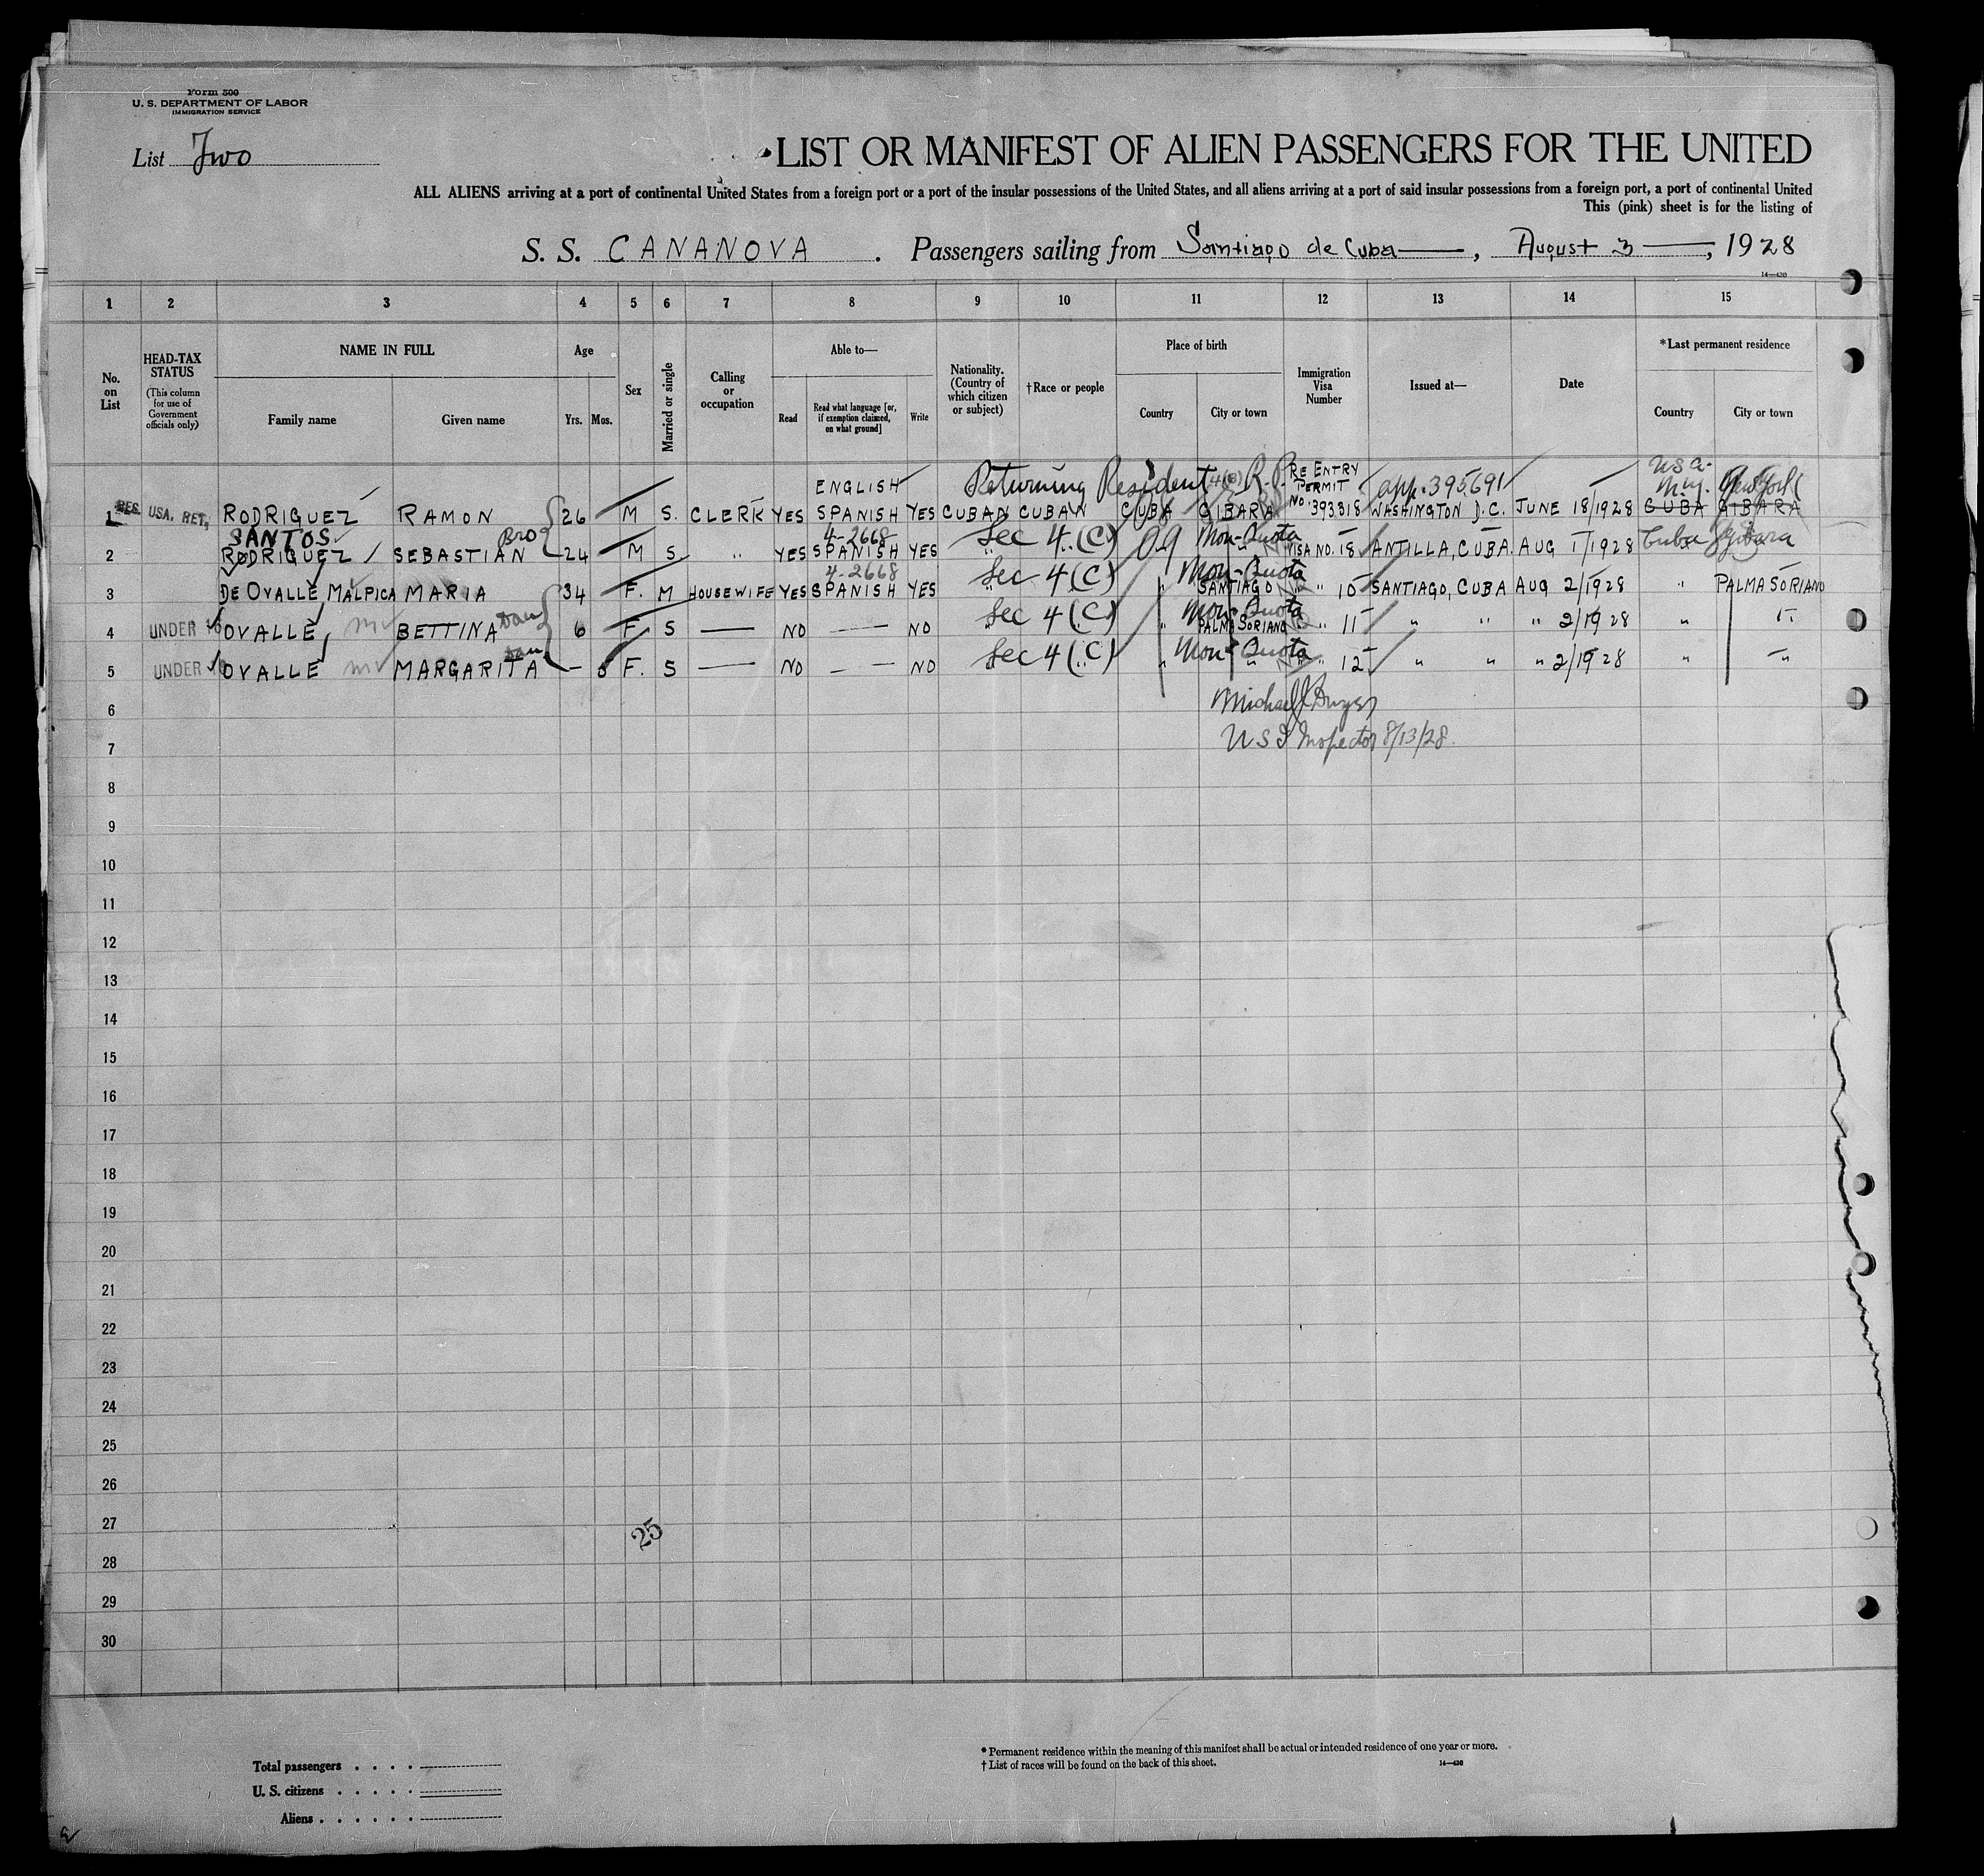 Form 500
U. S. DEPARTMENT OF LABOR
IMMIGRATION SERVICE
List Two
LIST OR MANIFEST OF ALIEN PASSENGERS FOR THE UNITED
ALL ALIENS arriving at a port of continental United States from a foreign port or a port of the insular possessions of the United States, and all aliens arriving at a port of said insular possessions from a foreign port, a port of continental United
This (pink) sheet is for the listing of
S. S. CANANOVA. Passengers sailing from Santiago de Cuba, August 3, 1928
14—430
1 2 3 4 5 6 7 8 9 10 11 12 13 14 15
No. on List
HEAD-TAX STATUS (This column for use of Government officials only)
NAME IN FULL
Family name Given name
Age
Yrs. Mos.
Sex
Married or single
Calling or occupation
Able to—
Read Read what language [or, if exemption claimed, on what ground] Write
Nationality. (Country of which citizen or subject)
†Race or people
Place of birth
Country City or town
Immigration Visa Number
Issued at—
Date
*Last permanent residence
Country City or town
ENGLISH Returning Resident 4(B) R.P. RE ENTRY PERMIT app. 395691 USA. N.Y. New York
1 USA. RET. RODRIGUEZ RAMON 26 M S. CLERK YES SPANISH YES CUBAN CUBAN CUBA GIBARA No 393318 WASHINGTON D.C. JUNE 18/1928 CUBA GIBARA
SANTOS Bro 4-2668 Sec 4 (C) 09 Non-Quota
2 RODRIGUEZ SEBASTIAN 24 M S " YES SPANISH YES " " VISA NO. 18 ANTILLA, CUBA. AUG 1/1928 Cuba Gibara
4-2668 Sec 4 (C) Non-Quota
3 DE OVALLE MALPICA MARIA 34 F. M HOUSEWIFE YES SPANISH YES " SANTIAGO " " 10 SANTIAGO, CUBA AUG 2/1928 " PALMA SORIANO
Dau Sec 4 (C) Non-Quota
4 UNDER 16 OVALLE BETTINA 6 F S — NO — NO " " PALMA SORIANO " " 11 " " " 2/1928 " "
Dau Sec 4 (C) Non-Quota
5 UNDER 16 OVALLE MARGARITA — 8 F. S — NO — NO " " " 12 " " " 2/1928 " "
6
U S I Inspector 8/13/28
7
8
9
10
11
12
13
14
15
16
17
18
19
20
21
22
23
24
25
26
27
25
28
29
30
Total passengers
U. S. citizens
Aliens
*Permanent residence within the meaning of this manifest shall be actual or intended residence of one year or more.
†List of races will be found on the back of this sheet.
14—430